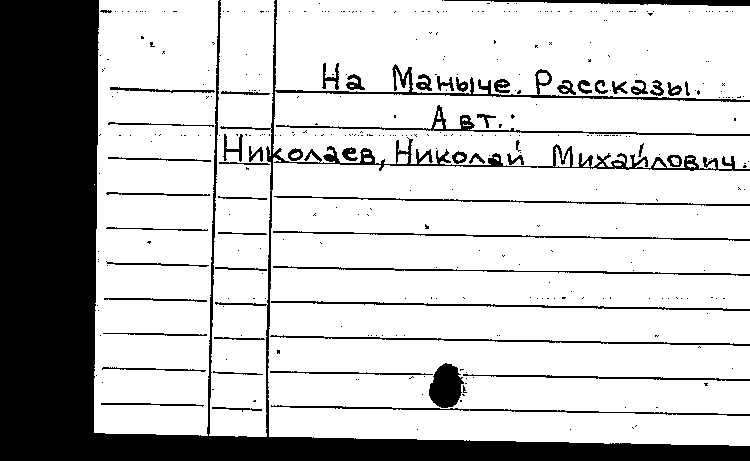 На Маныче. Рассказы.
Авт.:
Николаев, Николай Михайлович.